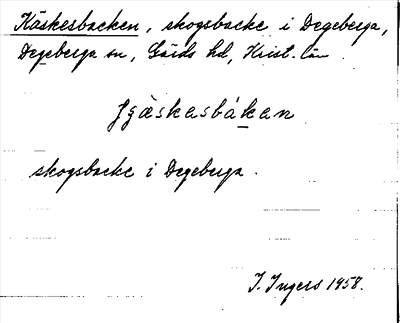 Käskesbacken, skogsbacke i Degeberga,
Degeberga sn, Gärds hd, Krist. län
skogsbacke i Degeberga.
I. Ingers 1958.